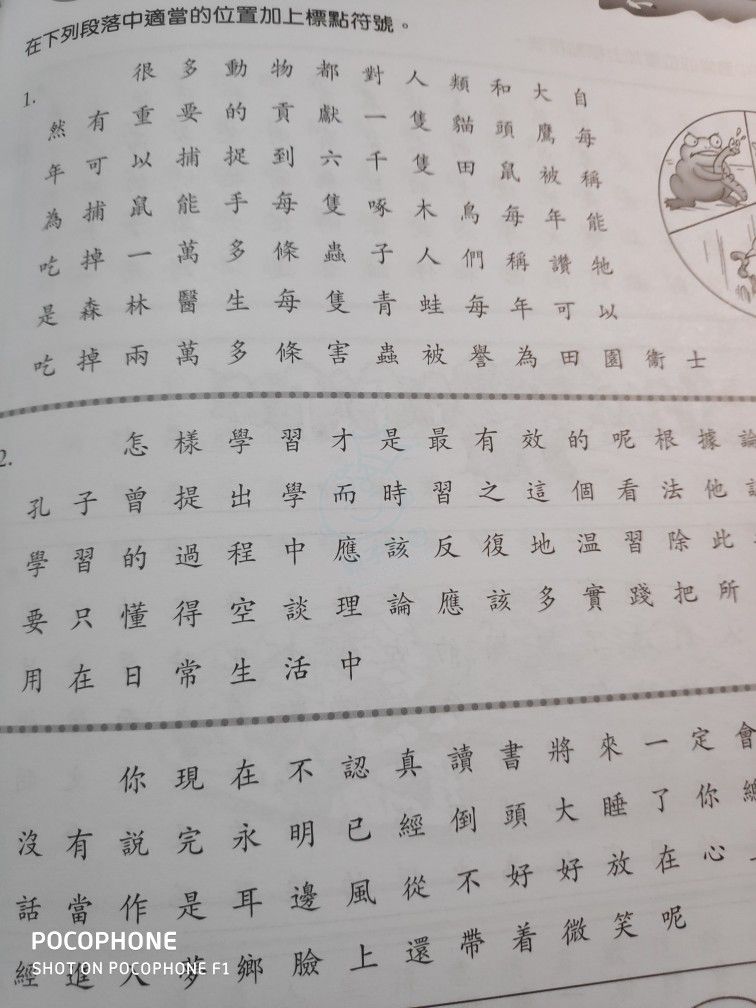 在下列段落中適當的位置加上標點符號。
1. 很多動物都對人類和大自
然有重要的貢獻一隻貓頭鷹每
年可以捕捉到六千隻田鼠被稱
為捕鼠能手每隻啄木鳥每年能
吃掉一萬多條蟲子人們稱讚牠
是森林醫生每隻青蛙每年可以
吃掉兩萬多條害蟲被譽為田園衞士
2. 怎樣學習才是最有效的呢根據論
孔子曾提出學而時習之這個看法他
學習的過程中應該反復地温習除此
要只懂得空談理論應該多實踐把所
用在日常生活中
你現在不認真讀書將來一定會
沒有説完永明已經倒頭大睡了你總
話當作是耳邊風從不好好放在心
經進入夢鄉臉上還帶着微笑呢
POCOPHONE
SHOT ON POCOPHONE F1